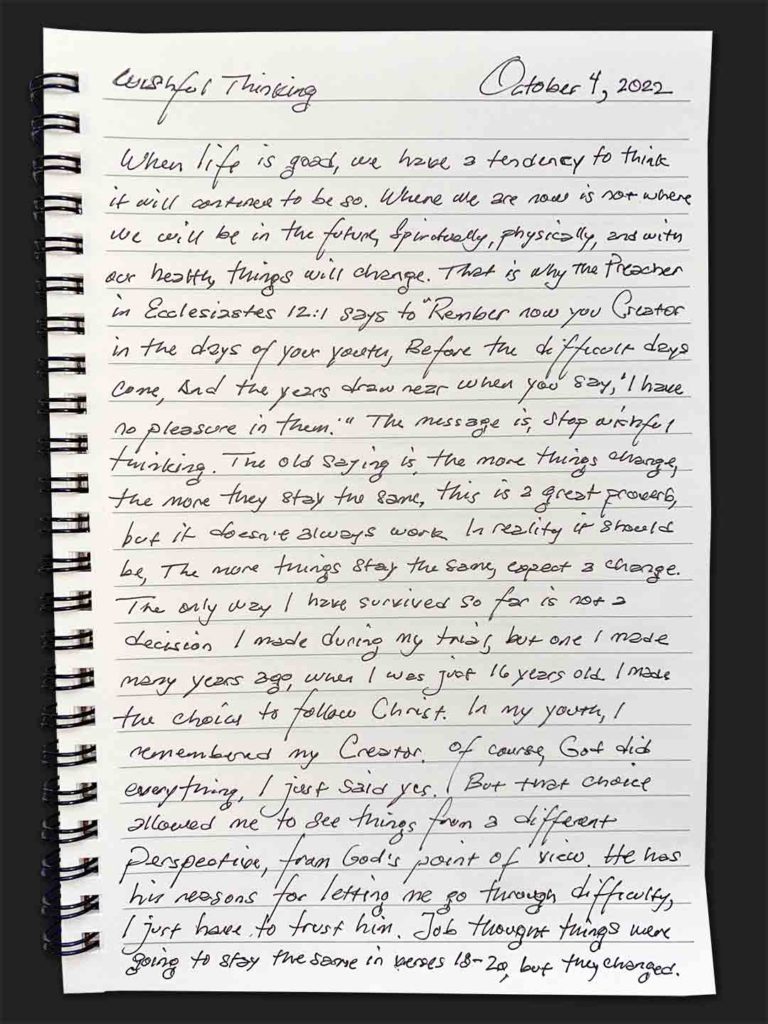 Wishful Thinking October 4, 2022
When life is good, we have a tendency to think
it will continue to be so. Where we are now is not where
we will be in the future, Spiritually, physically, and with
our health, things will change. That is why the Preacher
in Ecclesiastes 12:1 says to "Rember now you Creator
in the days of your youth, Before the difficult days
come, And the years draw near when you say, 'I have
no pleasure in them.'" The message is, stop wishful
thinking. The old saying is, the more things change,
the more they stay the same, this is a great proverb,
but it doesn't always work. In reality it should
be, The more things stay the same, expect a change.
The only way I have survived so far is not a
decision I made during my trial, but one I made
many years ago, when I was just 16 years old. I made
the choice to follow Christ. In my youth, I
remembered my Creator. Of course, God did
everything, I just said yes. But that choice
allowed me to see things from a different
perspective, from God's point of view. He has
his reasons for letting me go through difficulty,
I just have to trust him. Job thought things were
going to stay the same in verses 18-20, but they changed.